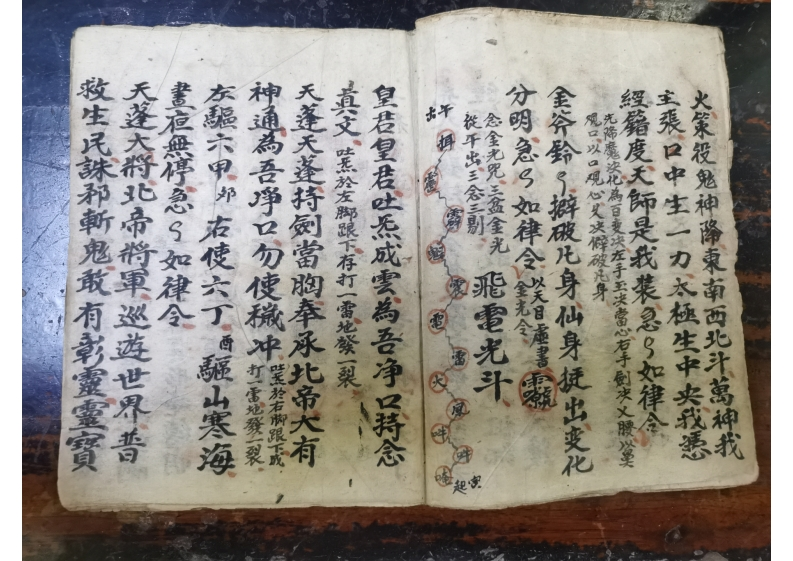 火策役鬼神降東南西北斗萬神我
主張口中生一力太極生中央我憑
經籙度天師是我裝急々如律令
光降魔決化為日variant決左手玉決當心右手劍決叉腰以昊
咒口以口咒心叉決僻破凡身
金斧鈴々擗破凡身仙身挺出变化
分明急々如律令 金光令 以天目虛書
念金光咒三盆金光
從午出三念三剔
飛電光斗
午
霹
電
雷
火
風
寅起
皇君皇君吐炁成雲為吾净口持念
真文 吐炁於左脚跟下存打一雷地發一裂
天蓬天蓬持劍當胸奉承北帝大有
神通為吾净口勿使穢冲 吐炁於右脚跟下或打一雷地發一裂
左驅六甲 卯 右使六丁 酉 驅山塞海
晝夜無停急々如律令
天蓬大將北帝將軍巡遊世界普
救生民誅邪斬鬼敢有彰靈靈寶